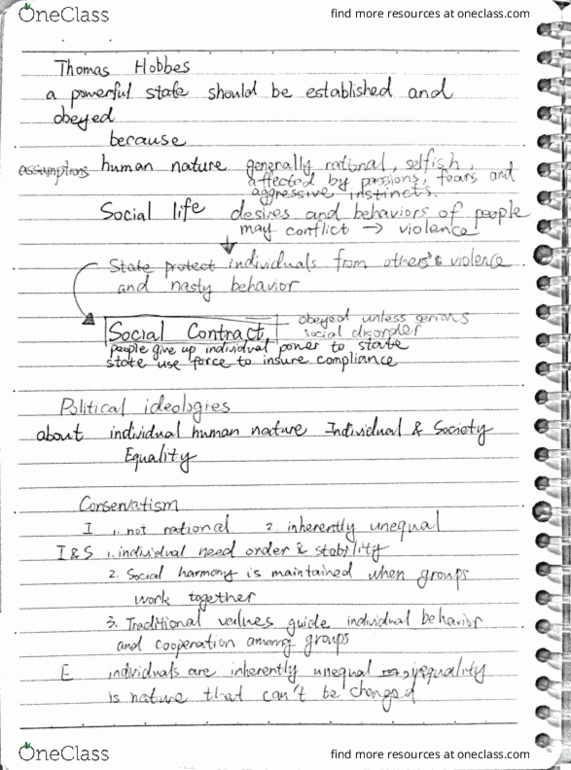 OneClass
find more resources at oneclass.com
Thomas Hobbes
a powerful state should be established and
obeyed
because
assumptions human nature generally rational, selfish,
affected by passions, fears and
aggressive instincts.
Social life desires and behaviors of people
may conflict → violence!
State protect individuals from others's violence
and nasty behavior
Social Contract, obeyed unless serious
social disorder
people give up individual power to state
state use force to insure compliance
Political ideologies
about individual human nature Individual & Society
Equality
Conservatism
I 1. not rational 2. inherently unequal
I & S 1. individual need order & stability
2. Social harmony is maintained when groups
work together
3. Traditional values guide individual behavior
and cooperation among groups
E individuals are inherently unequal inequality
is nature that can't be changed
OneClass
find more resources at oneclass.com